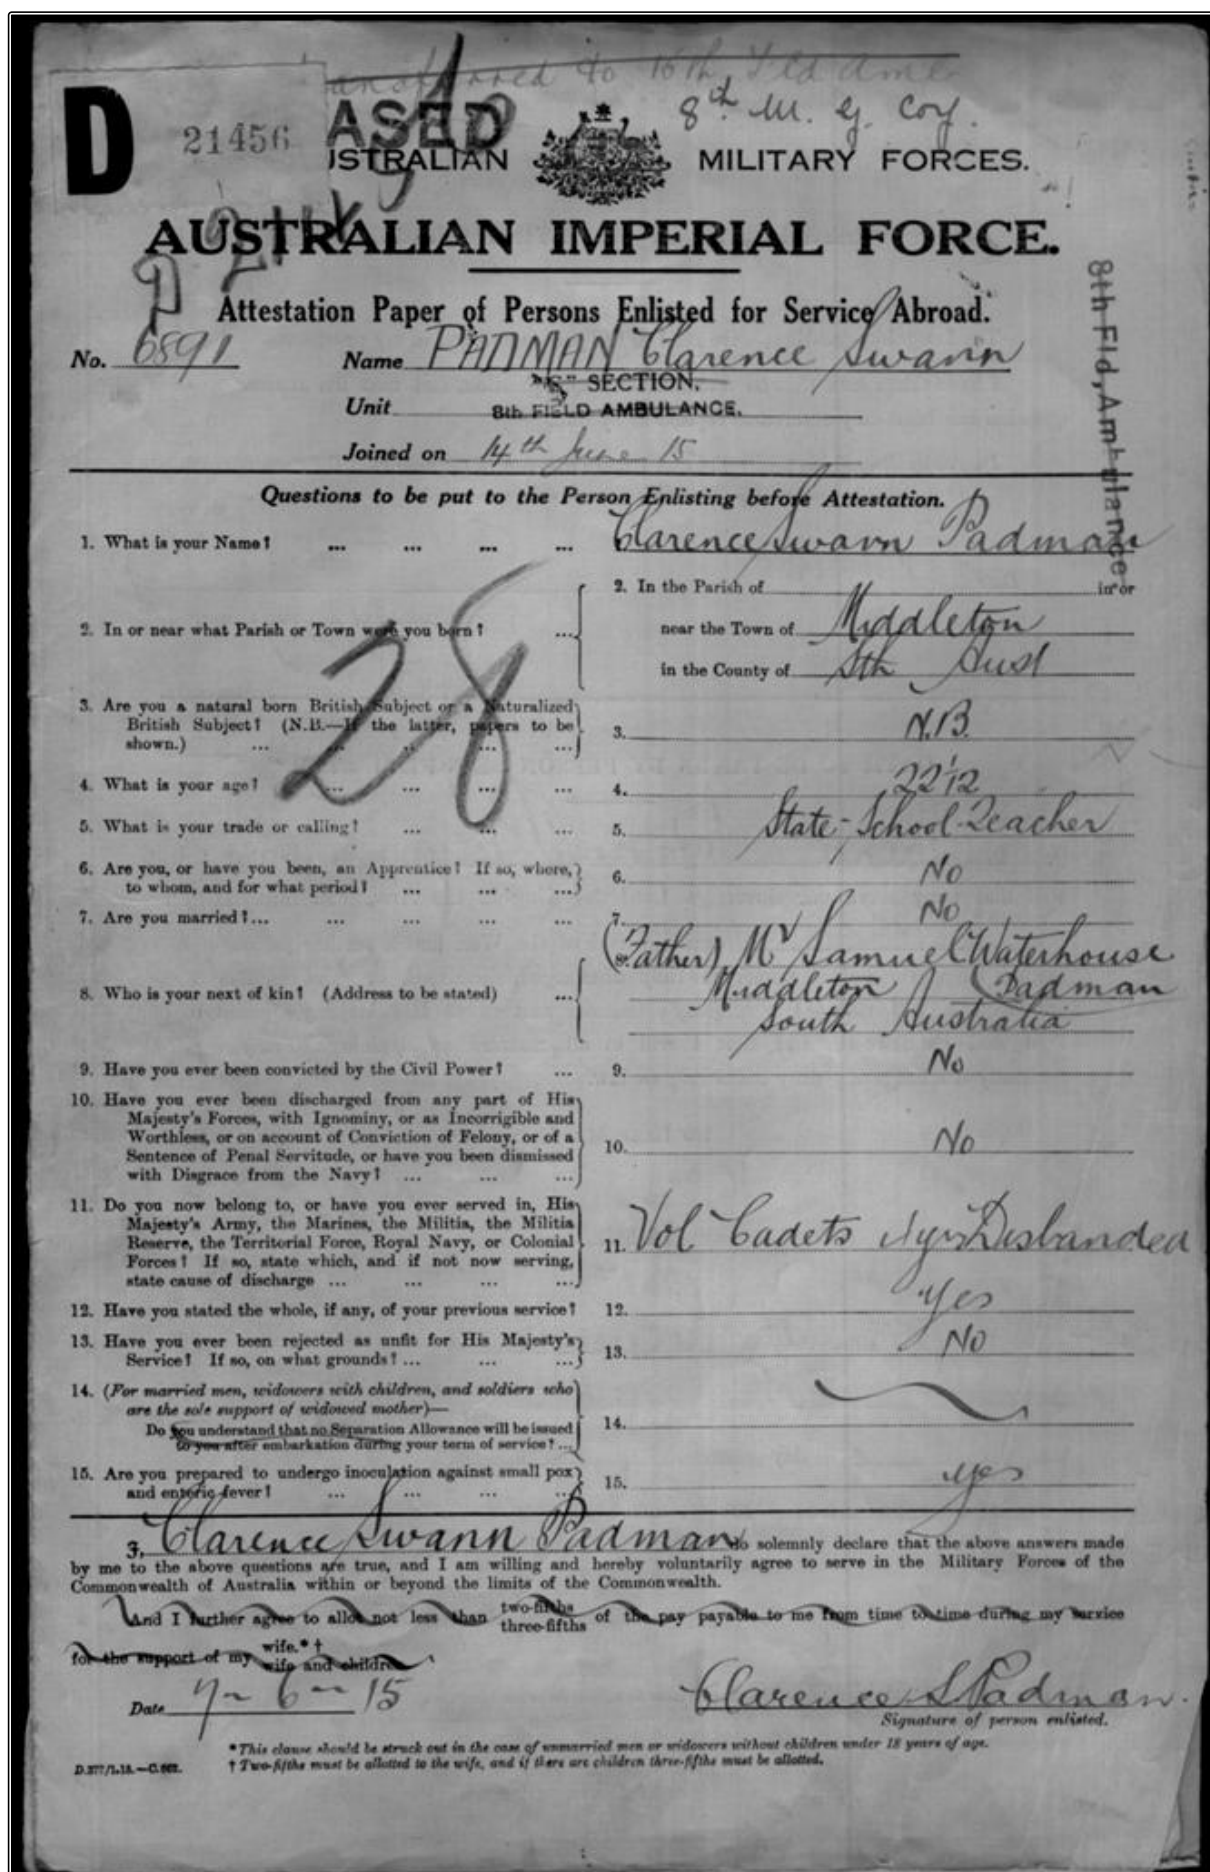 to 15th Fld Amb
8th M. G. Coy.
D
21456
ASED
USTRALIAN MILITARY FORCES.
AUSTRALIAN IMPERIAL FORCE.
Attestation Paper of Persons Enlisted for Service Abroad.
No. 6891 Name PADMAN Clarence Swann
SECTION.
Unit 8th FIELD AMBULANCE.
Joined on 14th June 15
8th Fld, Ambulance
Questions to be put to the Person Enlisting before Attestation.
1. What is your Name? ... ... ... ... Clarence Swann Padman
2. In the Parish of in or
2. In or near what Parish or Town were you born? ... near the Town of Middleton
in the County of Sth Aust
28
3. Are you a natural born British Subject or a Naturalized
British Subject? (N.B.—If the latter, papers to be
shown.) ... ... ... ... ... 3. N.B.
4. What is your age? ... ... ... 4. 22 1/12
5. What is your trade or calling? ... ... ... 5. State-School-Teacher
6. Are you, or have you been, an Apprentice? If so, where,
to whom, and for what period? ... ... ... 6. No
7. Are you married?... ... ... ... 7. No
(Father) Mr Samuel Waterhouse
8. Who is your next of kin? (Address to be stated) ... Middleton Padman
South Australia
9. Have you ever been convicted by the Civil Power? ... 9. No
10. Have you ever been discharged from any part of His
Majesty's Forces, with Ignominy, or as Incorrigible and
Worthless, or on account of Conviction of Felony, or of a
Sentence of Penal Servitude, or have you been dismissed
with Disgrace from the Navy? ... ... ... 10. No
11. Do you now belong to, or have you ever served in, His
Majesty's Army, the Marines, the Militia, the Militia
Reserve, the Territorial Force, Royal Navy, or Colonial
Forces? If so, state which, and if not now serving,
state cause of discharge ... ... ... ... 11. Vol Cadets Disbanded
12. Have you stated the whole, if any, of your previous service? 12. Yes
13. Have you ever been rejected as unfit for His Majesty's
Service? If so, on what grounds? ... ... ... 13. No
14. (For married men, widowers with children, and soldiers who
are the sole support of widowed mother)—
Do you understand that no Separation Allowance will be issued
to you after embarkation during your term of service? ... 14.
15. Are you prepared to undergo inoculation against small pox
and enteric fever? ... ... ... ... 15. yes
I, Clarence Swann Padman do solemnly declare that the above answers made
by me to the above questions are true, and I am willing and hereby voluntarily agree to serve in the Military Forces of the
Commonwealth of Australia within or beyond the limits of the Commonwealth.
And I further agree to allot not less than two-fifths three-fifths of the pay payable to me from time to time during my service
for the support of my wife.*† wife and children
Date 7-6-15 Clarence S Padman.
Signature of person enlisted.
*This clause should be struck out in the case of unmarried men or widowers without children under 18 years of age.
D.377/1.15.—C.662. † Two-fifths must be allotted to the wife, and if there are children three-fifths must be allotted.